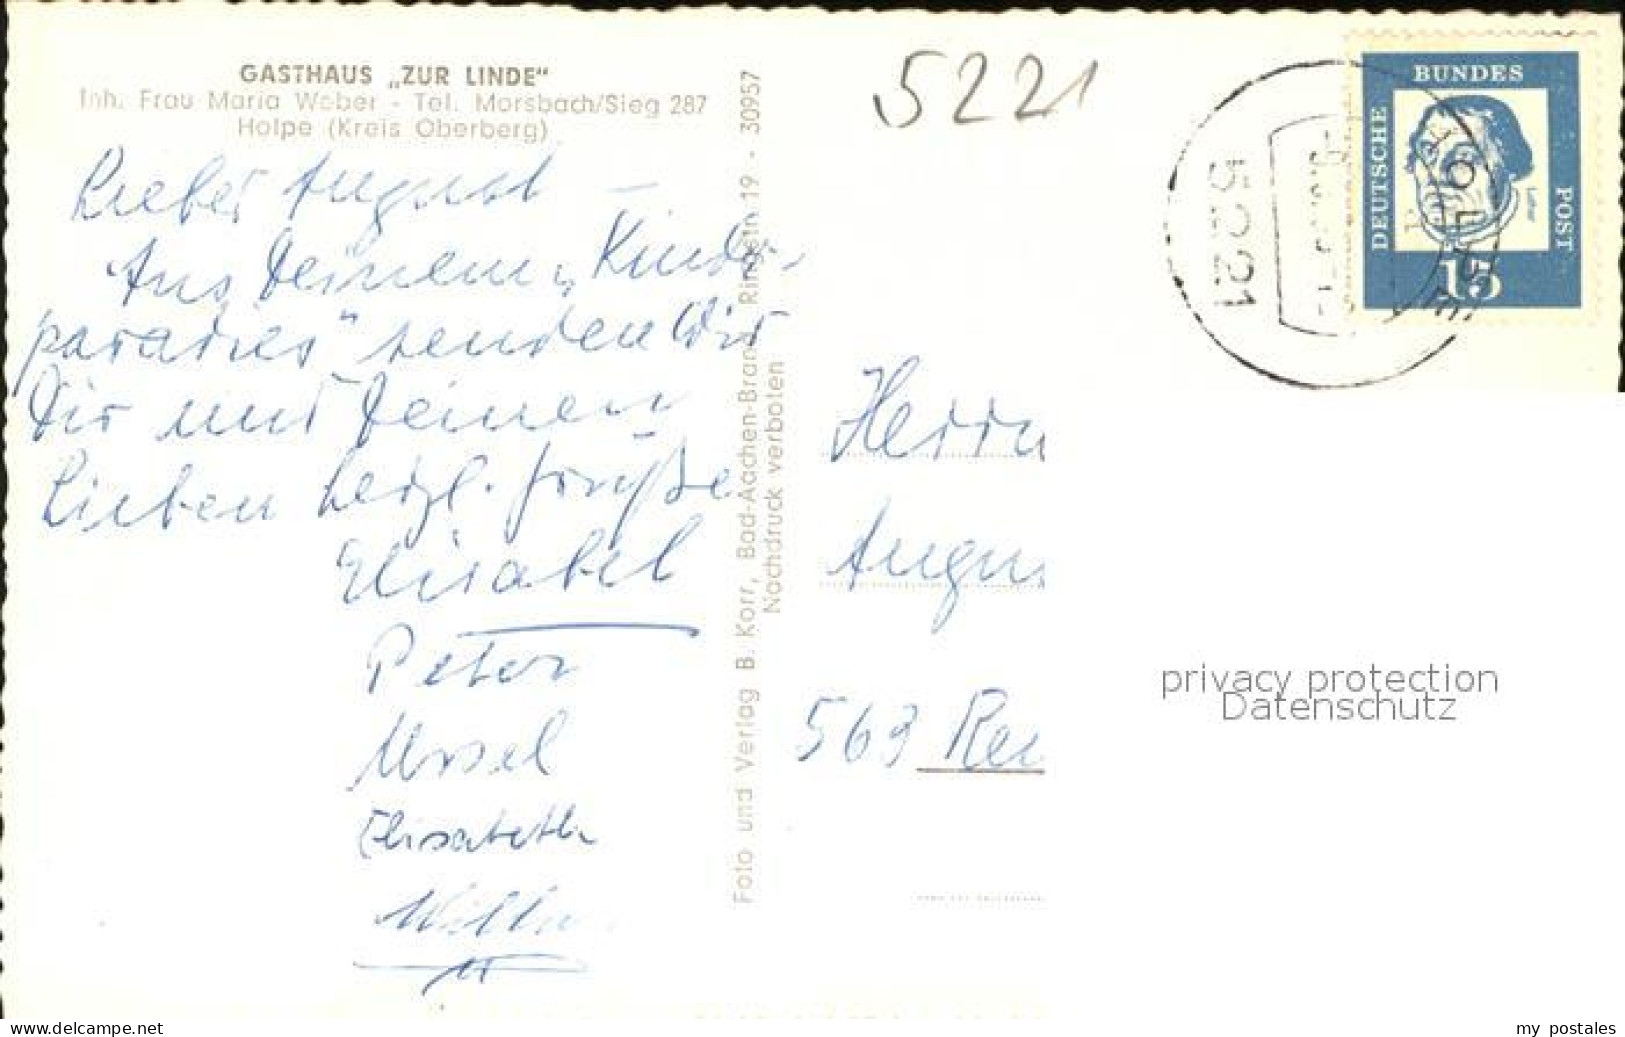 GASTHAUS „ZUR LINDE“
Inh. Frau Maria Weber - Tel. Morsbach/Sieg 287
Holpe (Kreis Oberberg)
Lieber August –
Aus Deinem „Kinder-
paradies“ senden Wir
Dir und Deinen
Lieben herzl. Grüße
Elisabeth
Peter
Ursel
Elisabeth
Foto und Verlag B. Korr, Bad-Aachen-Brand Ringstr. 19 - 30957
Nachdruck verboten
5221
5221
DEUTSCHE
BUNDES
POST
Luther
15
Herrn
Augu
563 Rem
privacy protection
Datenschutz
www.delcampe.net
my postales